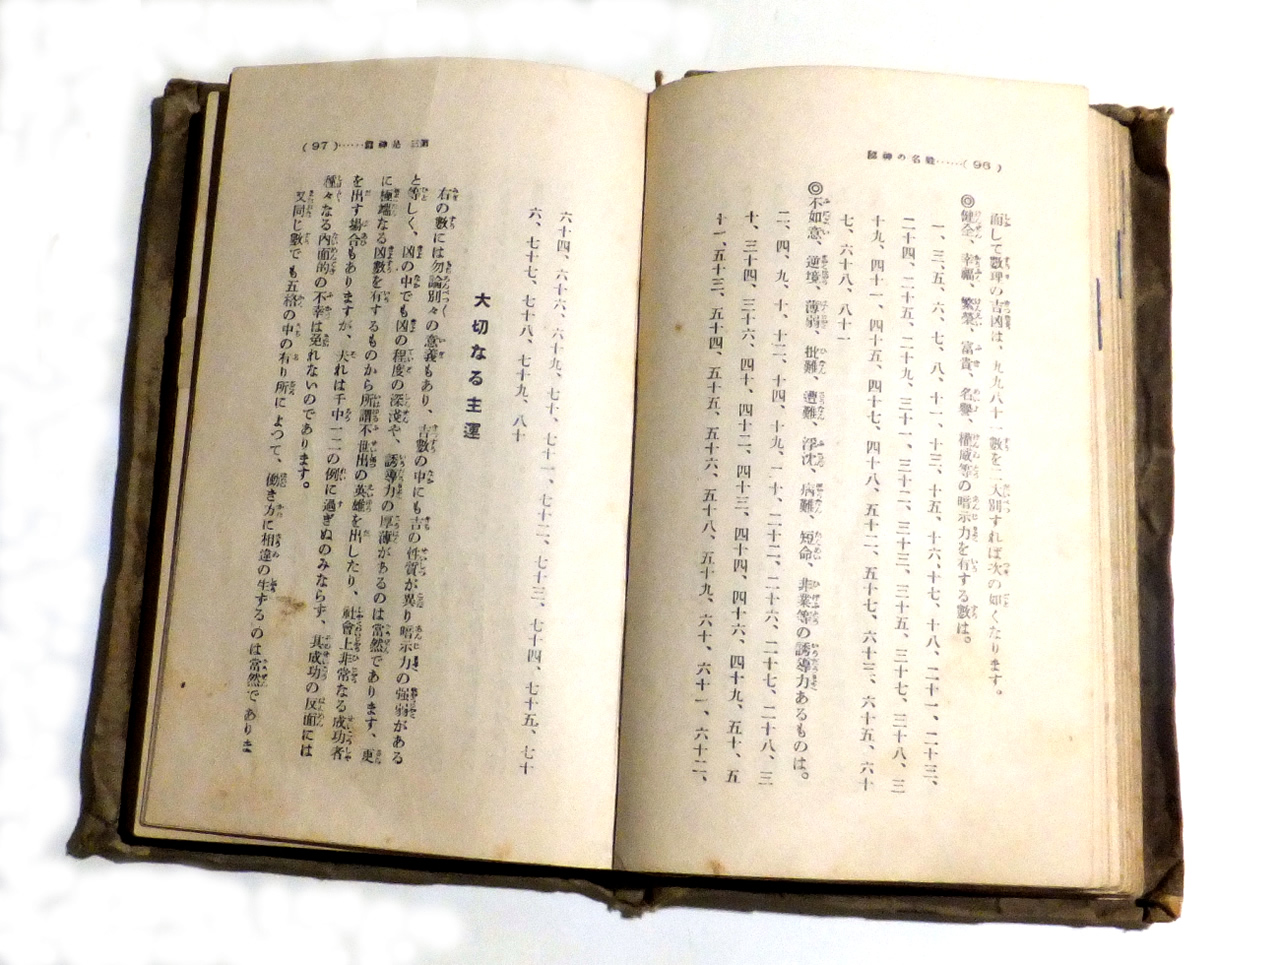 數名の神祕……(96)
而して數理の吉凶は、九九八十一數を二大別すれば次の如くなります。
◎健全、幸福、繁榮、富貴、名譽、權威等の暗示力を有する數は。
一、三、五、六、七、八、十一、十三、十五、十六、十七、十八、二十一、二十三、
二十四、二十五、二十九、三十一、三十二、三十三、三十五、三十七、三十八、三
十九、四十一、四十五、四十七、四十八、五十二、五十七、六十三、六十五、六十
七、六十八、八十一
◎不如意、逆境、薄弱、批難、遭難、浮沈、病難、短命、非業等の誘導力あるものは。
二、四、九、十、十二、十四、十九、二十、二十二、二十六、二十七、二十八、三
十、三十四、三十六、四十、四十二、四十三、四十四、四十六、四十九、五十、五
十一、五十三、五十四、五十五、五十六、五十八、五十九、六十、六十一、六十二、
(97)……
六十四、六十六、六十九、七十、七十一、七十二、七十三、七十四、七十五、七十
六、七十七、七十八、七十九、八十
大切なる主運
右の數には勿論別々の意義もあり、吉數の中にも吉の性質が異り暗示力の强弱がある
と等しく、凶の中でも凶の程度の深淺や、誘導力の厚薄があるのは當然であります、更
に極端なる凶數を有するものから所謂不世出の英雄を出したり、社會上非常なる成功者
を出す場合もありますが、夫れは千中一二の例に過ぎぬのみならず、其成功の反面には
種々なる內面的の不幸は免れないのであります。
又同じ數でも五格の中の有り所によつて、働き方に相違の生ずるのは當然でありま